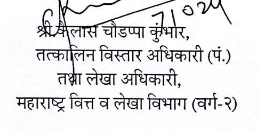 श्री.कैलास चौडप्पा कुंभार,
तत्कालिन विस्तार अधिकारी (पं.)
तथा लेखा अधिकारी,
महाराष्ट्र वित्त व लेखा विभाग (वर्ग-२)